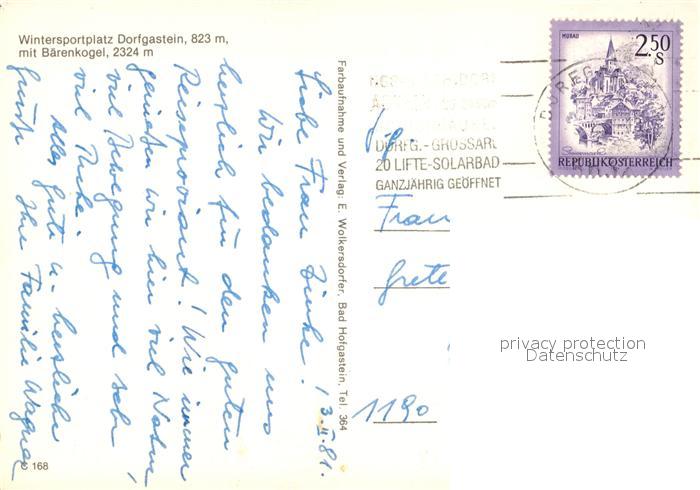 Wintersportplatz Dorfgastein, 823 m,
mit Bärenkogel, 2324 m
13.II.81.
Liebe Frau Zinke!
Wir bedanken uns
herzlich für den guten
Reiseproviant! Wie immer
genießen wir hier viel Natur,
viel Bewegung und sehr
viel Ruhe.
Alles Gute u. herzliche
Grüße Ihre Familie Wagner
C 168
Farbaufnahme und Verlag: E. Wolkersdorfer, Bad Hofgastein, Tel. 364
DORFG.-GROSSARL
20 LIFTE-SOLARBAD
GANZJÄHRIG GEÖFFNET
MURAU
2.50
S
REPUBLIK ÖSTERREICH
Frau
Grete
1190
privacy protection
Datenschutz